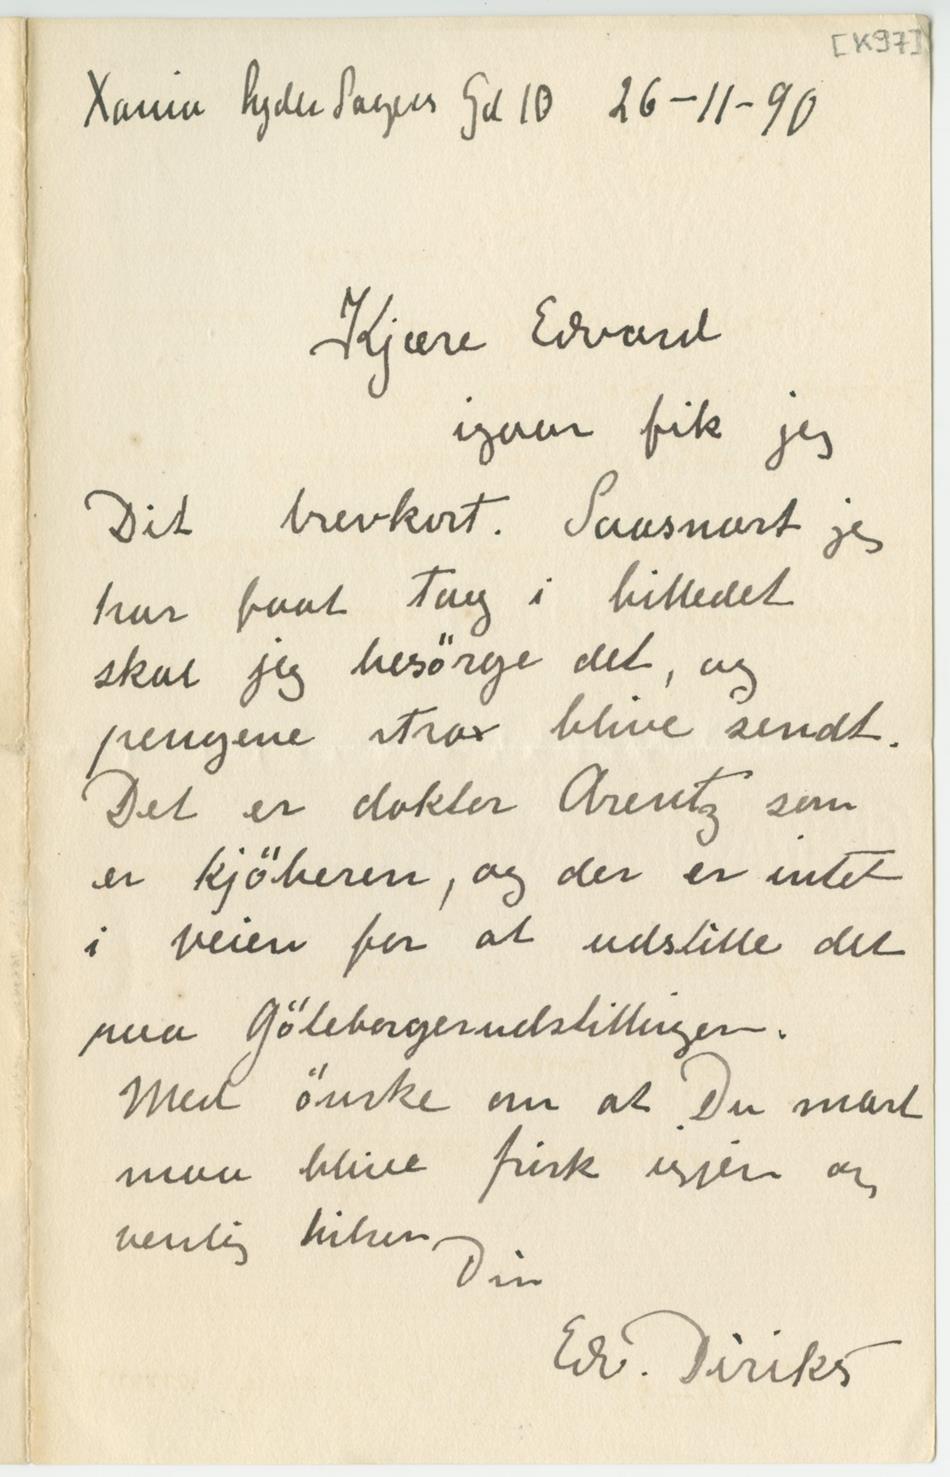 [K97]
Xania Lyder Sagens Gd 10 26-11-90
Kjære Edvard
igaar fik jeg
Dit brevkort. Saasnart jeg
har faat tag i billedet
skal jeg besörge det, og
pengene strax blive sendt.
Det er doktor Arentz som
er kjöberen, og der er intet
i veien for at udstille det
paa Göteborgerudstillingen.
Med önske om at Du snart
maa blive frisk igjen og
venlig hilsen
Din
Edv. Diriks